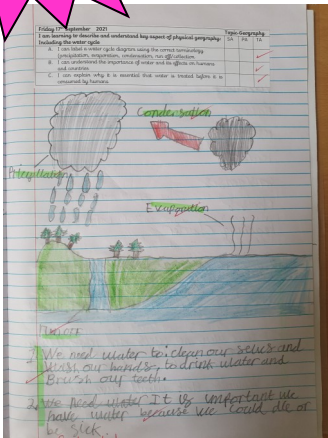 Friday 17th September 2021
Topic: Geography
I am learning to describe and understand key aspect of physical geography: SA TA
Including the water cycle
A. I can label a water cycle diagram using the correct terminology
(precipitation, evaporation, condensation, run off/collection
B. I can understand the importance of water and its effects on humans
and countries.
C. I can explain why it is essential that water is treated before it is
consumed by humans.
Condensation
Evaporation
1. We need water to: clean our selus and
wash our hands, to drink water and
Brush our teeth.
2. We need water It is important we
have water because we could die or
be sick.